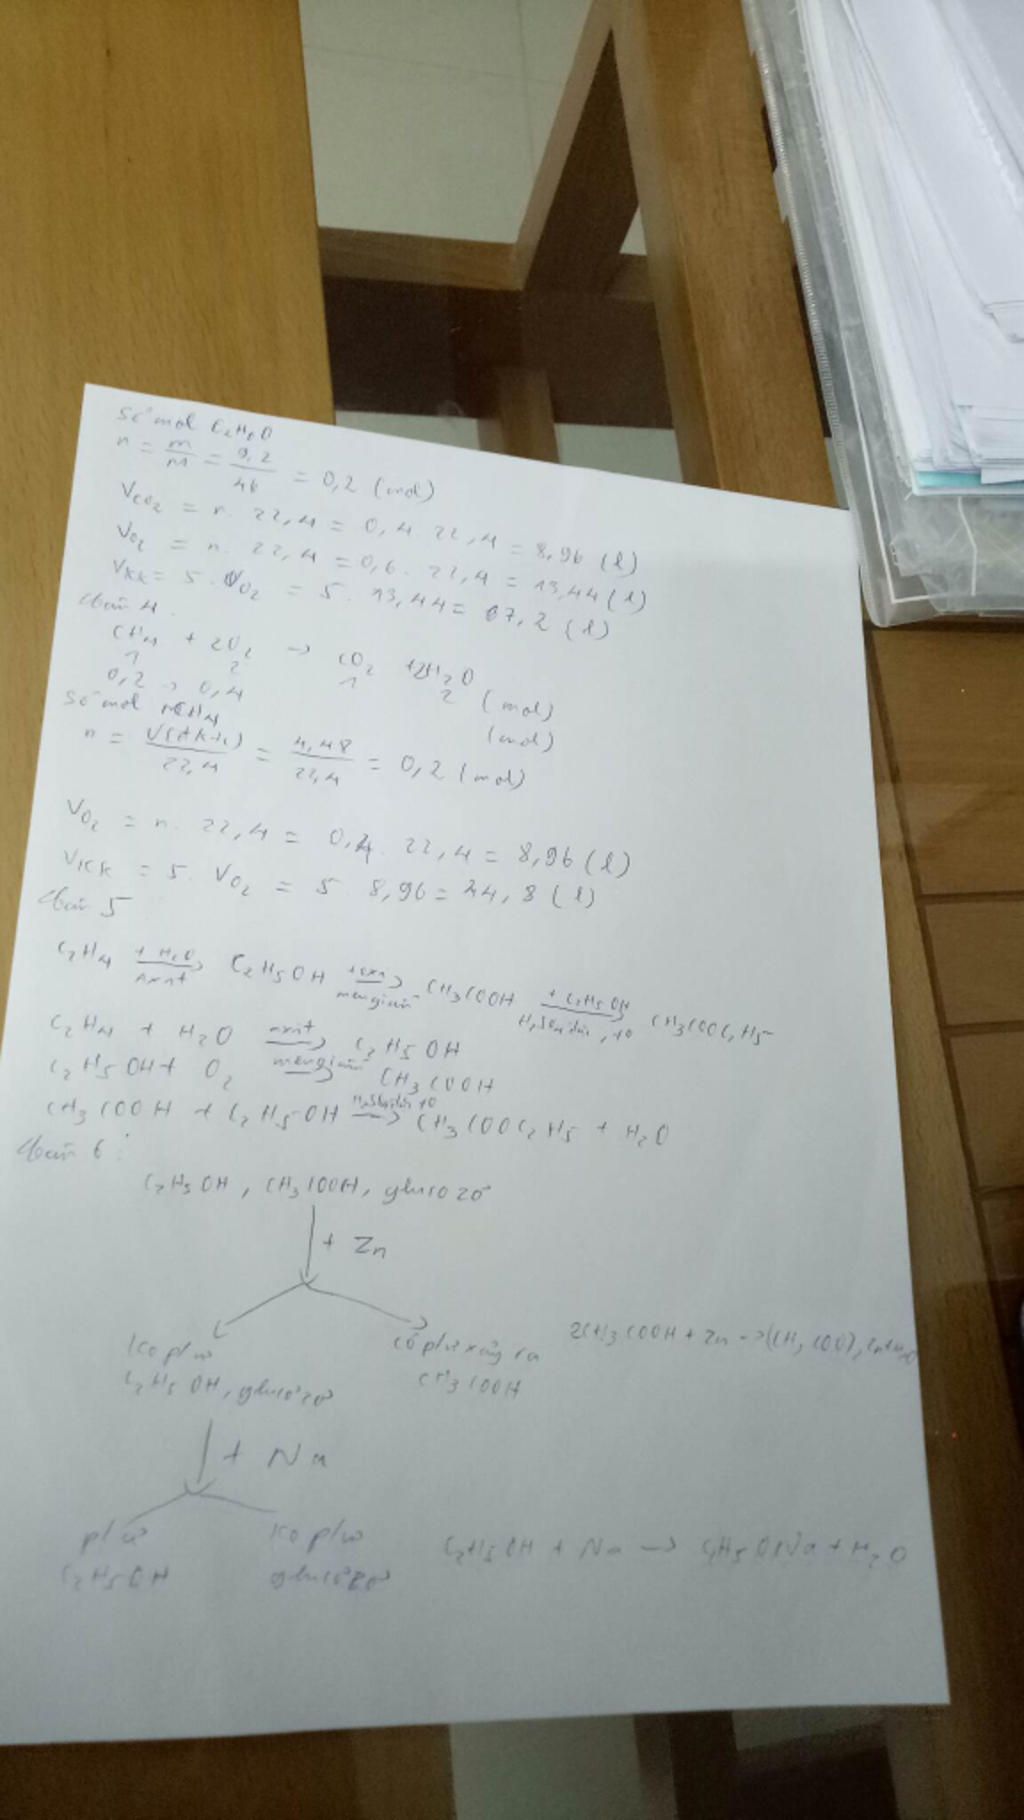 Số mol C2H6O
n = m/M = 9,2/46 = 0,2 (mol)
VCO2 = n. 22,4 = 0,4. 22,4 = 8,96 (l)
VO2 = n. 22,4 = 0,6. 22,4 = 13,44 (l)
VKK = 5. VO2 = 5. 13,44 = 67,2 (l)
Bài 4.
CH4 + 2O2 → CO2 + 2H2O
1 2 1 2 (mol)
0,2 → 0,4 (mol)
Số mol CH4
n = V(đktc)/22,4 = 4,48/22,4 = 0,2 (mol)
VO2 = n. 22,4 = 0,4. 22,4 = 8,96 (l)
VKK = 5. VO2 = 5 8,96 = 44,8 (l)
Bài 5
C2H4 + H2O → axit C2H5OH + oxi → men giấm CH3COOH + C2H5OH → H2SO4 đặc, to CH3COOC2H5
C2H4 + H2O axit → C2H5OH
C2H5OH + O2 men giấm → CH3COOH
CH3COOH + C2H5OH H2SO4 đặc to → CH3COOC2H5 + H2O
Bài 6:
C2H5OH, CH3COOH, glucozơ
+ Zn
Ko pứ có pứ xảy ra 2CH3COOH + Zn → (CH3COO)2Zn + H2O
C2H5OH, glucozơ CH3COOH
+ Na
pứ ko pứ C2H5OH + Na → C2H5ONa + H2O
C2H5OH glucozơ